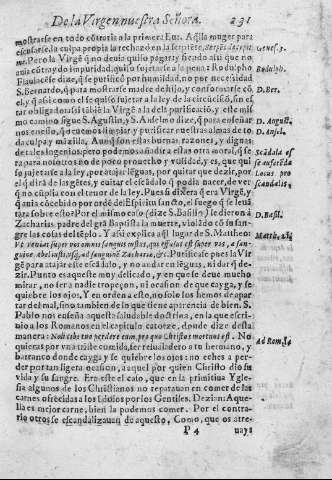 De la Virgen nuestra Señora. 231
mostrarse en todo cõtraria a la primera Eua. Aq̃lla muger para
escusarse, la culpa propia la rechazò en la serpiẽte, Serpẽs decepit
me. Pero la Virgẽ q̃ no deuia quiso pagar: y
uia cõtraydo impuridad, quiso sujetarse a la pena: Rodulpho
Fuldense, dize, q̃ se purificò por humildad, no por necesidad
S. Bernardo, q̃ para mostrarse madre de su hijo, y conformarse cõ
el, y q̃ assi como el se quiso sujetar a la ley de la circũcisiõ, sin es
tar obligado: assi tãbiẽ la Virgẽ a la de la purificaciõ, y este mis
mo camino sigue S. Agustin, y S. Anselmo dize, q̃ para enseñar
nos en esto, q̃ deuemos limpiar y purificar nuestras almas de to
da culpa y mãzilla. Aunq̃ son estas buenas razones, y dignas
de tales ingenios, pero podemos añadir a ellas otra moral, q̃ se
ra para nosotros no de poco prouecho y vtilidad, y es, que qui
so sujetarse a la ley, por atajar lẽguas, por quitar que dezir, por
el q̃ dirã de las gẽtes, y euitar el escãdalo q̃ podia nacer, de ver
q̃ no cũplia con el tenor de la ley. Pues dixera q̃ era Virgẽ, y
q̃ auia cõcebido por orde del Espiritu sancto, el fuego q̃ se leuã
tara sobre esto? Por el mismo caso (dize S. Basilio) se dieron a
Zacharias padre del grã Baptista la muerte, violãdo cõ su san-
gre las losas del tẽplo. Y assi explica aq̃l lugar de S. Mattheo:
Vt veniat super vos omnis sanguis iustus, qui effusus est super terrã, a san-
guine Abel iusti, vsq; ad sanguinẽ Zachariæ, &c. Purificose pues la Vir
gẽ para atajar este escãdalo, y no andar en lẽguas, ni dar q̃ de-
zir. Punto es aqueste muy delicado, y en que se deue mucho
mirar, no ser a nadie tropeçon, ni ocasion de que cayga, y se
quiebre los ojos, Y en orden a esto, no solo los hemos de apar
tar del mal, sino tambien de lo que tiene aparencia de bien. S.
Pablo nos enseña aquesta saludable doctrina, en la que escri-
uio a los Romanos en el capitulo catorze, donde dize desta
manera: Noli cibo tuo perdere eum pro quo Christus mortuus est. No
quieras por vna triste comida, ser resualadero a tu hermano, y
barranco donde cayga y se quiebre los ojos: no eches a per-
der por tan ligera ocasion, a aquel por quien Christo dio su
vida y su sangre. Era este el caso, que en la primitiua Ygle-
sia algunos de los Christianos no reparauan en comer de las
carnes ofrecidas a los Idolos por los Gentiles. Dezian: Aque
lla es mejor carne, bien la podemos comer. Por el contra-
rio otros se escandalizauan de aquesto, Como, que os atre-
P 4 uays
Genes. 3.
Rodulph.
D. Ber.
D. August.
D. Anselm.
Scãdalo
Locus pro
scandalis.
D. Basil.
Matth. 23.
Ad Rom. 14